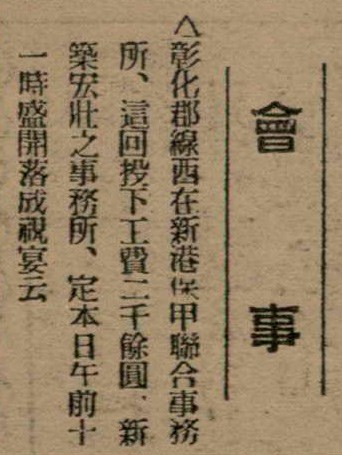 會事
△彰化郡線西在新港保甲聯合事務
所、這回投下工費二千餘圓、新
築宏壯之事務所、定本日午前十
一時盛開落成祝宴云